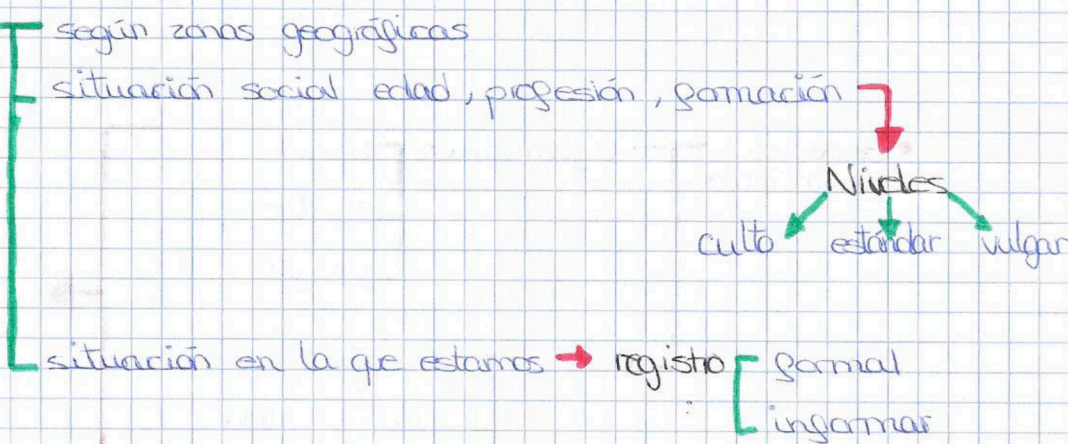 según zonas geográficas
situación social edad, profesión, formación
Niveles
culto estándar vulgar
situación en la que estamos registro formal
informar